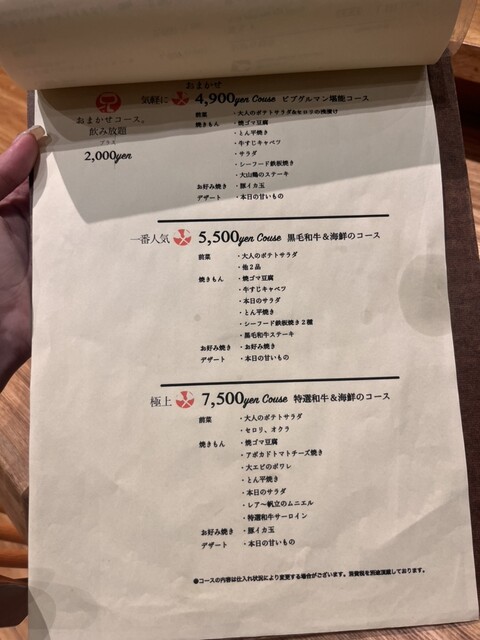 おまかせ
気軽に 4,900yen Couse ビブグルマン堪能コース
おまかせコース。
飲み放題
プラス
2,000yen
前菜 ・大人のポテトサラダ&セロリの浅漬け
焼きもん ・焼ゴマ豆腐
・とん平焼き
・牛すじキャベツ
・サラダ
・シーフード鉄板焼き
・大山鶏のステーキ
お好み焼き ・豚イカ玉
デザート ・本日の甘いもの
一番人気 5,500yen Couse 黒毛和牛&海鮮のコース
前菜 ・大人のポテトサラダ
・他2品
焼きもん ・焼ゴマ豆腐
・牛すじキャベツ
・本日のサラダ
・とん平焼き
・シーフード鉄板焼き2種
・黒毛和牛ステーキ
お好み焼き ・お好み焼き
デザート ・本日の甘いもの
極上 7,500yen Couse 特選和牛&海鮮のコース
前菜 ・大人のポテトサラダ
・セロリ、オクラ
焼きもん ・焼ゴマ豆腐
・アボカドトマトチーズ焼き
・大エビのポワレ
・とん平焼き
・本日のサラダ
・レア〜帆立のムニエル
・特選和牛サーロイン
お好み焼き ・豚イカ玉
デザート ・本日の甘いもの
●コースの内容は仕入れ状況により変更する場合がございます。消費税を別途頂戴しております。